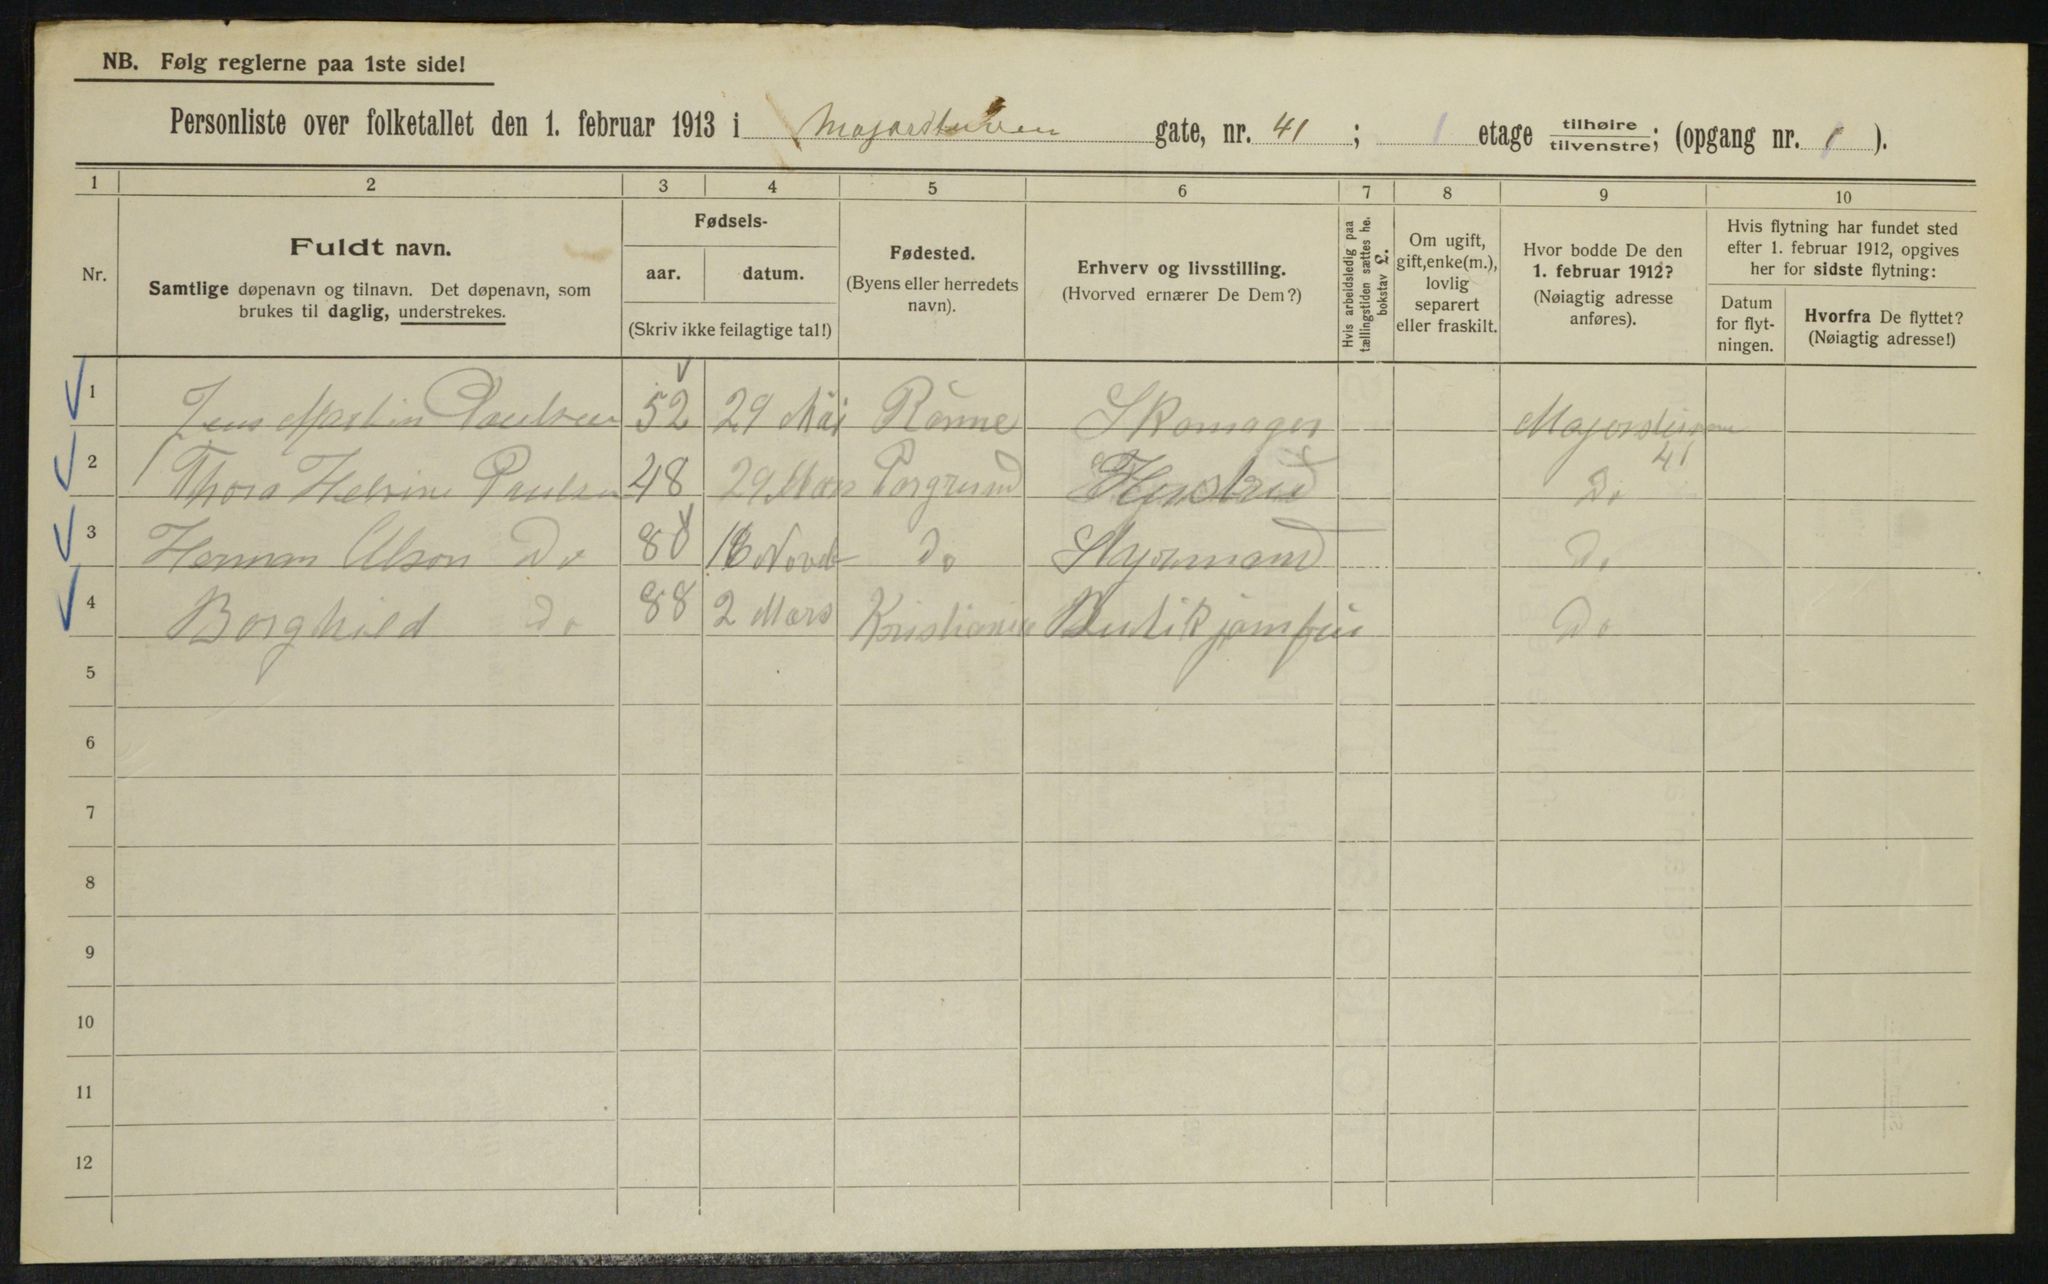 NB. Følg reglerne paa 1ste side!
Personliste over folketallet den 1. februar 1913 i Majorstuven gate, nr. 41; 1 etage tilhøire/tilvenstre; (opgang nr. 1).
1 2 3 4 5 6 7 8 9 10
Nr.
Fuldt navn.
Samtlige døpenavn og tilnavn. Det døpenavn, som
brukes til daglig, understrekes.
Fødsels-
aar. datum.
(Skriv ikke feilagtige tal!)
Fødested.
(Byens eller herredets
navn).
Erhverv og livsstilling.
(Hvorved ernærer De Dem?)
Hvis arbeidsledig paa
tællingstiden sættes he.
bokstav L.
Om ugift,
gift, enke(m.),
lovlig
separert
eller fraskilt.
Hvor bodde De den
1. februar 1912?
(Nøiagtig adresse
anføres).
Hvis flytning har fundet sted
efter 1. februar 1912, opgives
her for sidste flytning:
Datum
for flyt-
ningen.
Hvorfra De flyttet?
(Nøiagtig adresse!)
1 Jens Martin Paulsen 52 29 Mai Rönne Skomager Majorstuvene 41
2 Thora Helvine Paulsen 48 29 Mars Porgrund Hustrud Do
3 Herman Olson Do 88 16 Novb Do Styrmand Do
4 Borghild Do 88 2 Mars Kristiania Butikjomfru Do
5
6
7
8
9
10
11
12